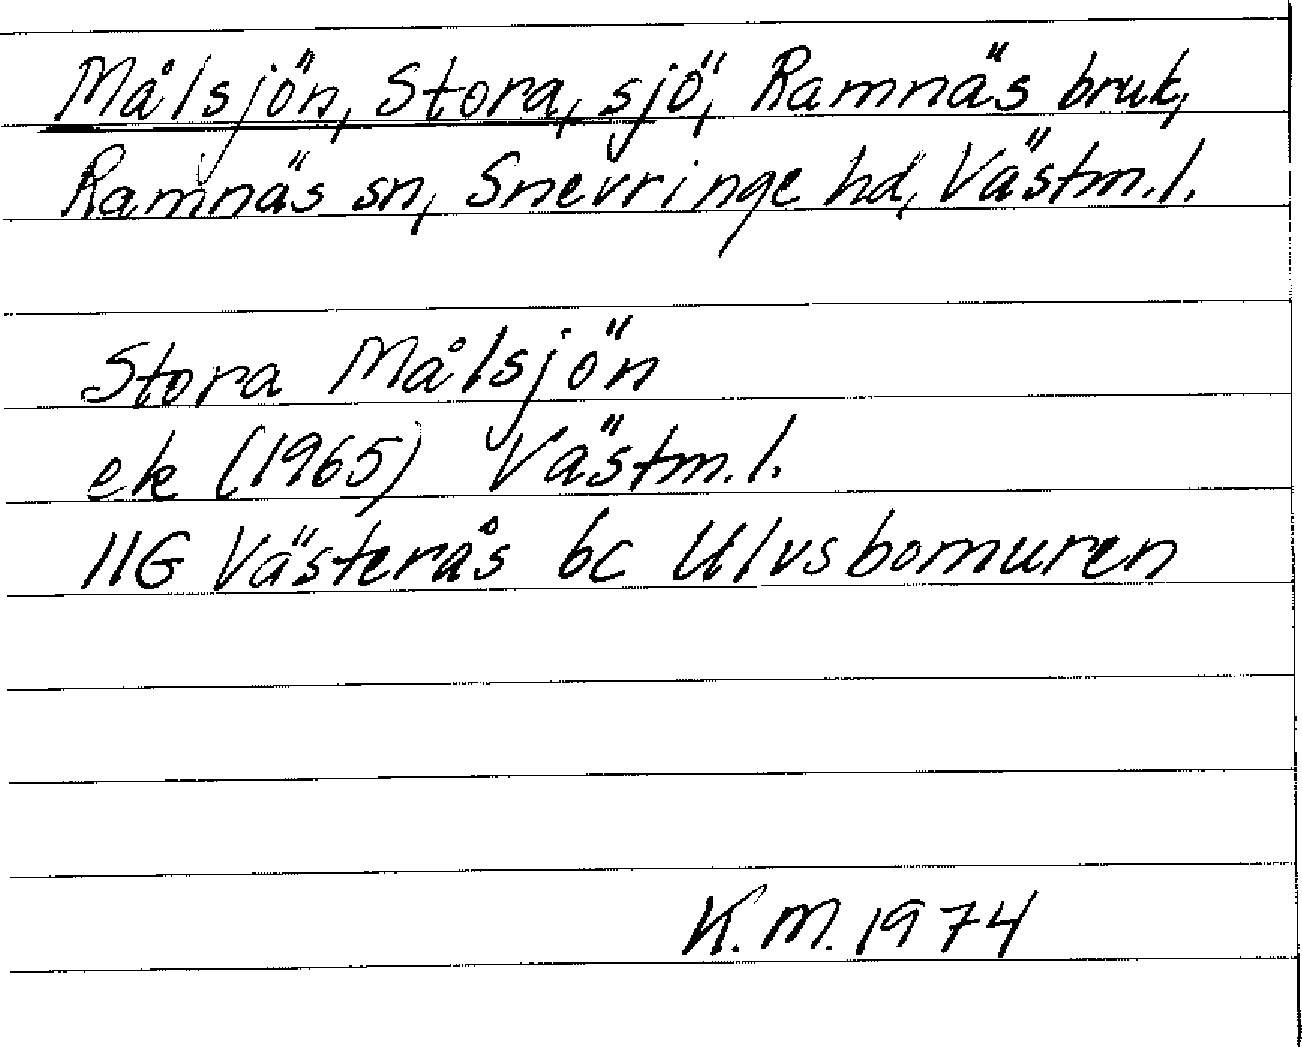 Målsjön, Stora, sjö, Ramnäs bruk,
Ramnäs sn, Snevringe hd, Västm.l.
Stora Målsjön
ek (1965) Västm.l.
11G Västerås 6c Ulvsbomuren
K.M. 1974